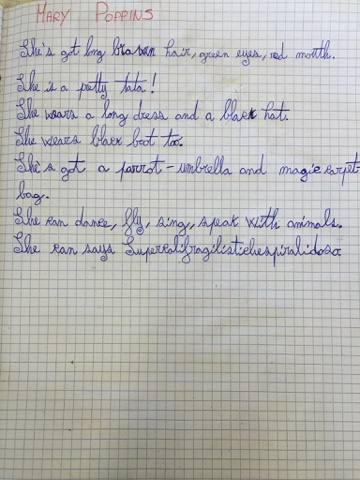 MARY POPPINS
She's got long brown hair, green eyes, red mouth.
She is a pretty tata!
She wears a long dress and a black hat.
She wears black boot too.
She's got a parrot-umbrella and magic carpet
bag.
She can dance, fly, sing, speak with animals.
She can says Supercalifragilistichespiralidoso